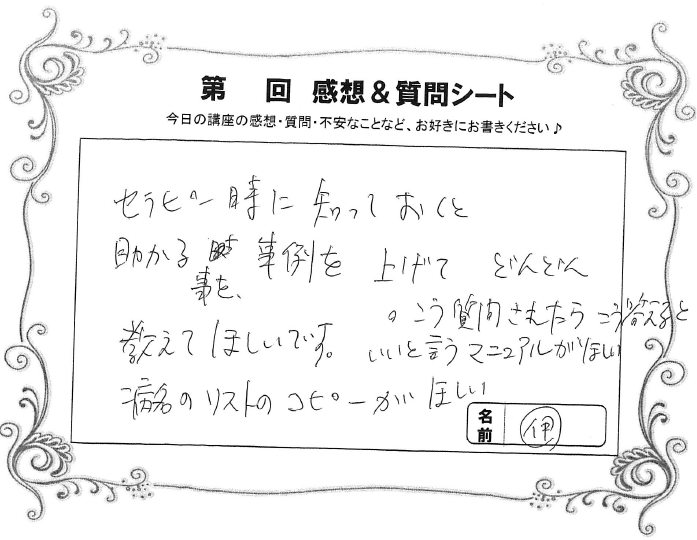 第　回 感想＆質問シート
今日の講座の感想・質問・不安なことなど、お好きにお書きください♪
セラピー時に知っておくと
助かる 事例を 上げて どんどん
事を、
教えてほしいです。
。こう質問されたらこう答えると
いいと言うマニュアルがほしい
病名のリストのコピーがほしい
名前 伊